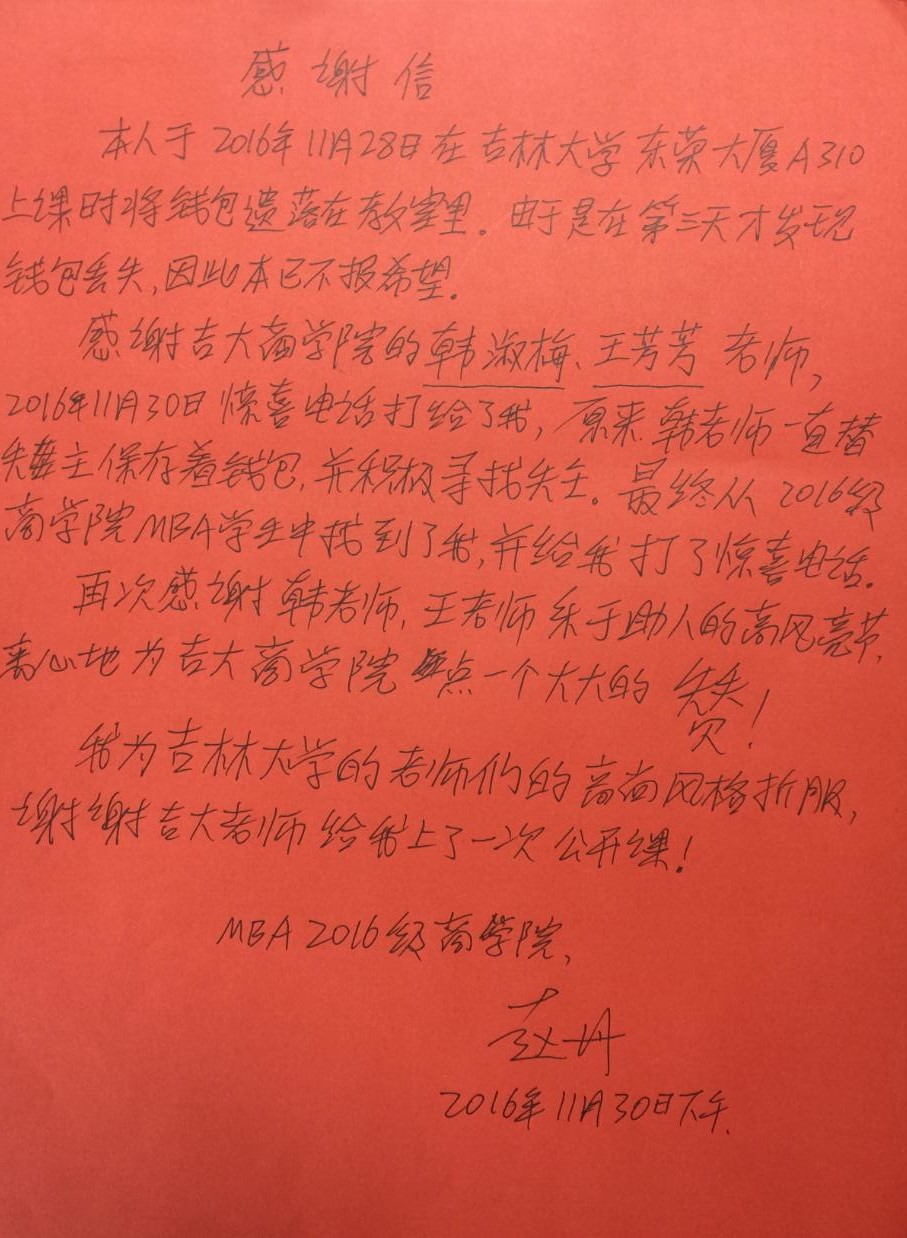 感谢信
本人于2016年11月28日在吉林大学东荣大厦A310
上课时将钱包遗落在教室里。由于是在第三天才发现
钱包丢失,因此本已不报希望。
感谢吉大商学院的韩淑梅、王芳芳老师,
2016年11月30日惊喜电话打给了我,原来韩老师一直替
失主保存着钱包,并积极寻找失主。最终从2016级
商学院MBA学生中找到了我,并给我打了惊喜电话。
再次感谢韩老师,王老师乐于助人的高风亮节,
衷心地为吉大商学院点一个大大的赞!
我为吉林大学的老师们的高尚风格折服,
谢谢吉大老师给我上了一次公开课!
MBA2016级商学院,
赵丹
2016年11月30日下午.